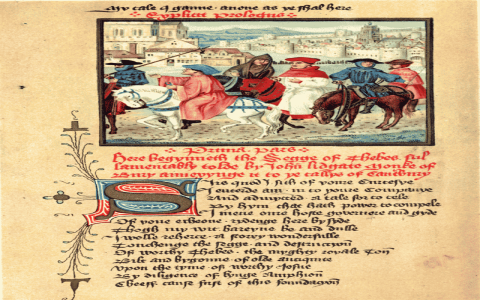 My tale I ganne anone as ye shal here
Explicit Prologus
Prima Pars
Here begynneth the Segge of Thebes ful
lamentably tolde by John lidgate Monke of
Bury anneyynge it to ye tallys of Cantbury
Sirs quod I sith of youre Curtesye
I entrede am in to youre Companye
And admytted a tale for to telle
By hym that hath power to compele
I mene oure hoste governere and gyde
Of youe echone rydenge here by syde
Thogh my wit bareyne be and dulle
I wolle reherce a story wonderfulle
Touchenge the segge and destruccion
Of worthy Thebes the myghty royale Ton
Bilt and begonne of olde antiquite
Upon the tyme of worthy Josue
By diligence of kynge Amphion
Cheeff cause first of this foundacion